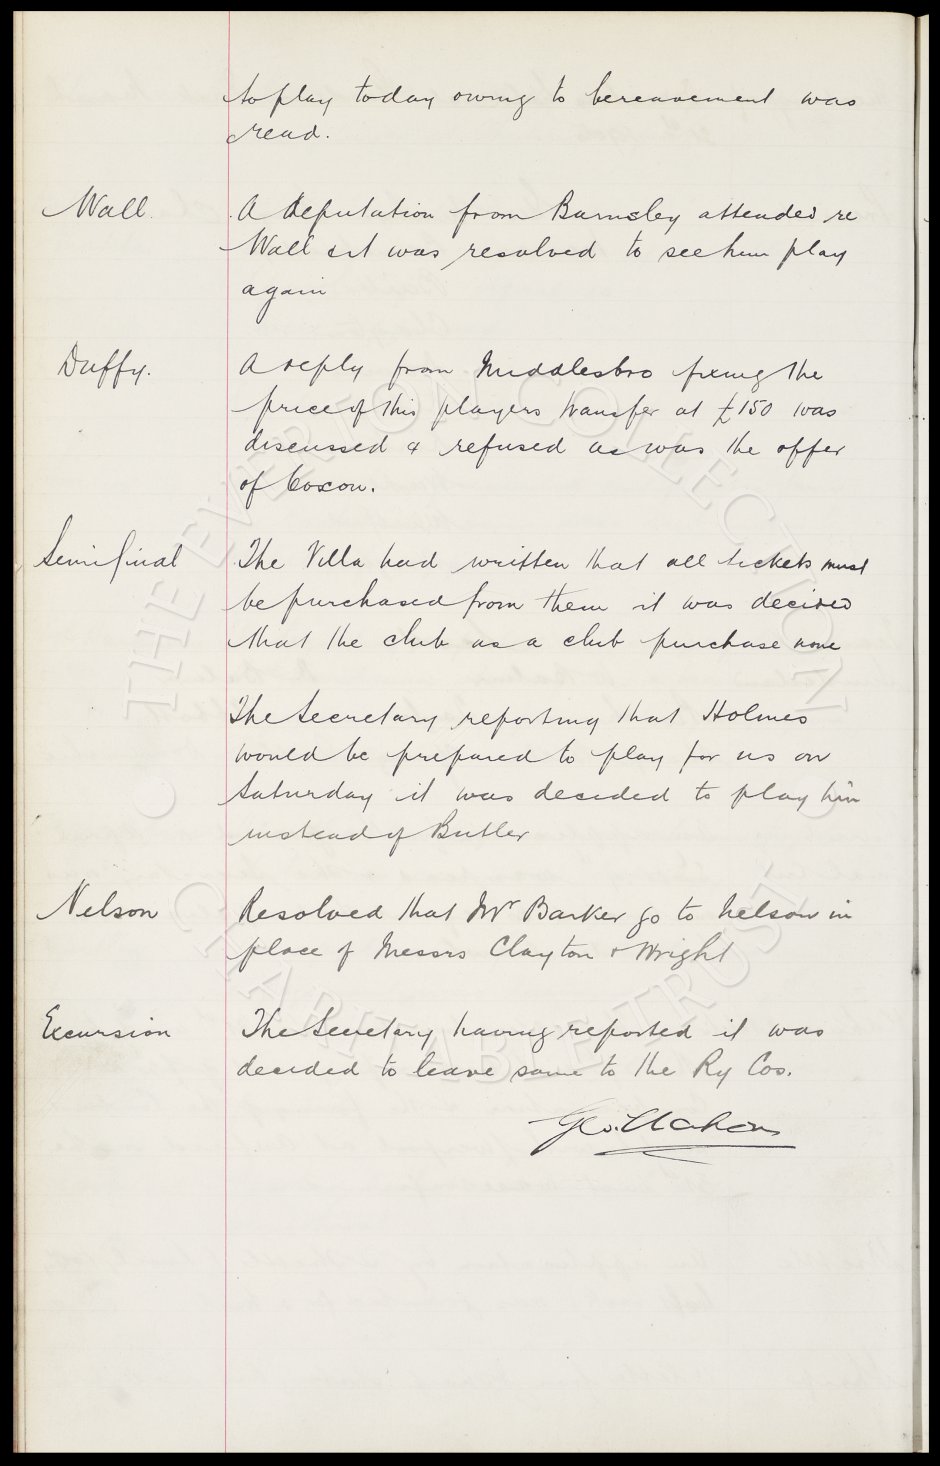 to play today owing to bereavement was
read.
Wall. A deputation from Barnsley attended re
Wall & it was resolved to see him play
again
Duffy. A reply from Middlesbro fixing the
price of this players transfer at £150 was
discussed & refused as was the offer
of Coxon.
Semi final The Villa had written that all tickets must
be purchased from them it was decided
that the club as a club purchase none
The Secretary reporting that Holmes
would be prepared to play for us on
Saturday it was decided to play him
instead of Butler
Nelson Resolved that Mr Barker go to Nelson in
place of Messrs Clayton & Wright
Excursion The Secretary having reported it was
decided to leave same to the Ry Cos.
Geo. Mahon
© THE EVERTON COLLECTION
CHARITABLE TRUST